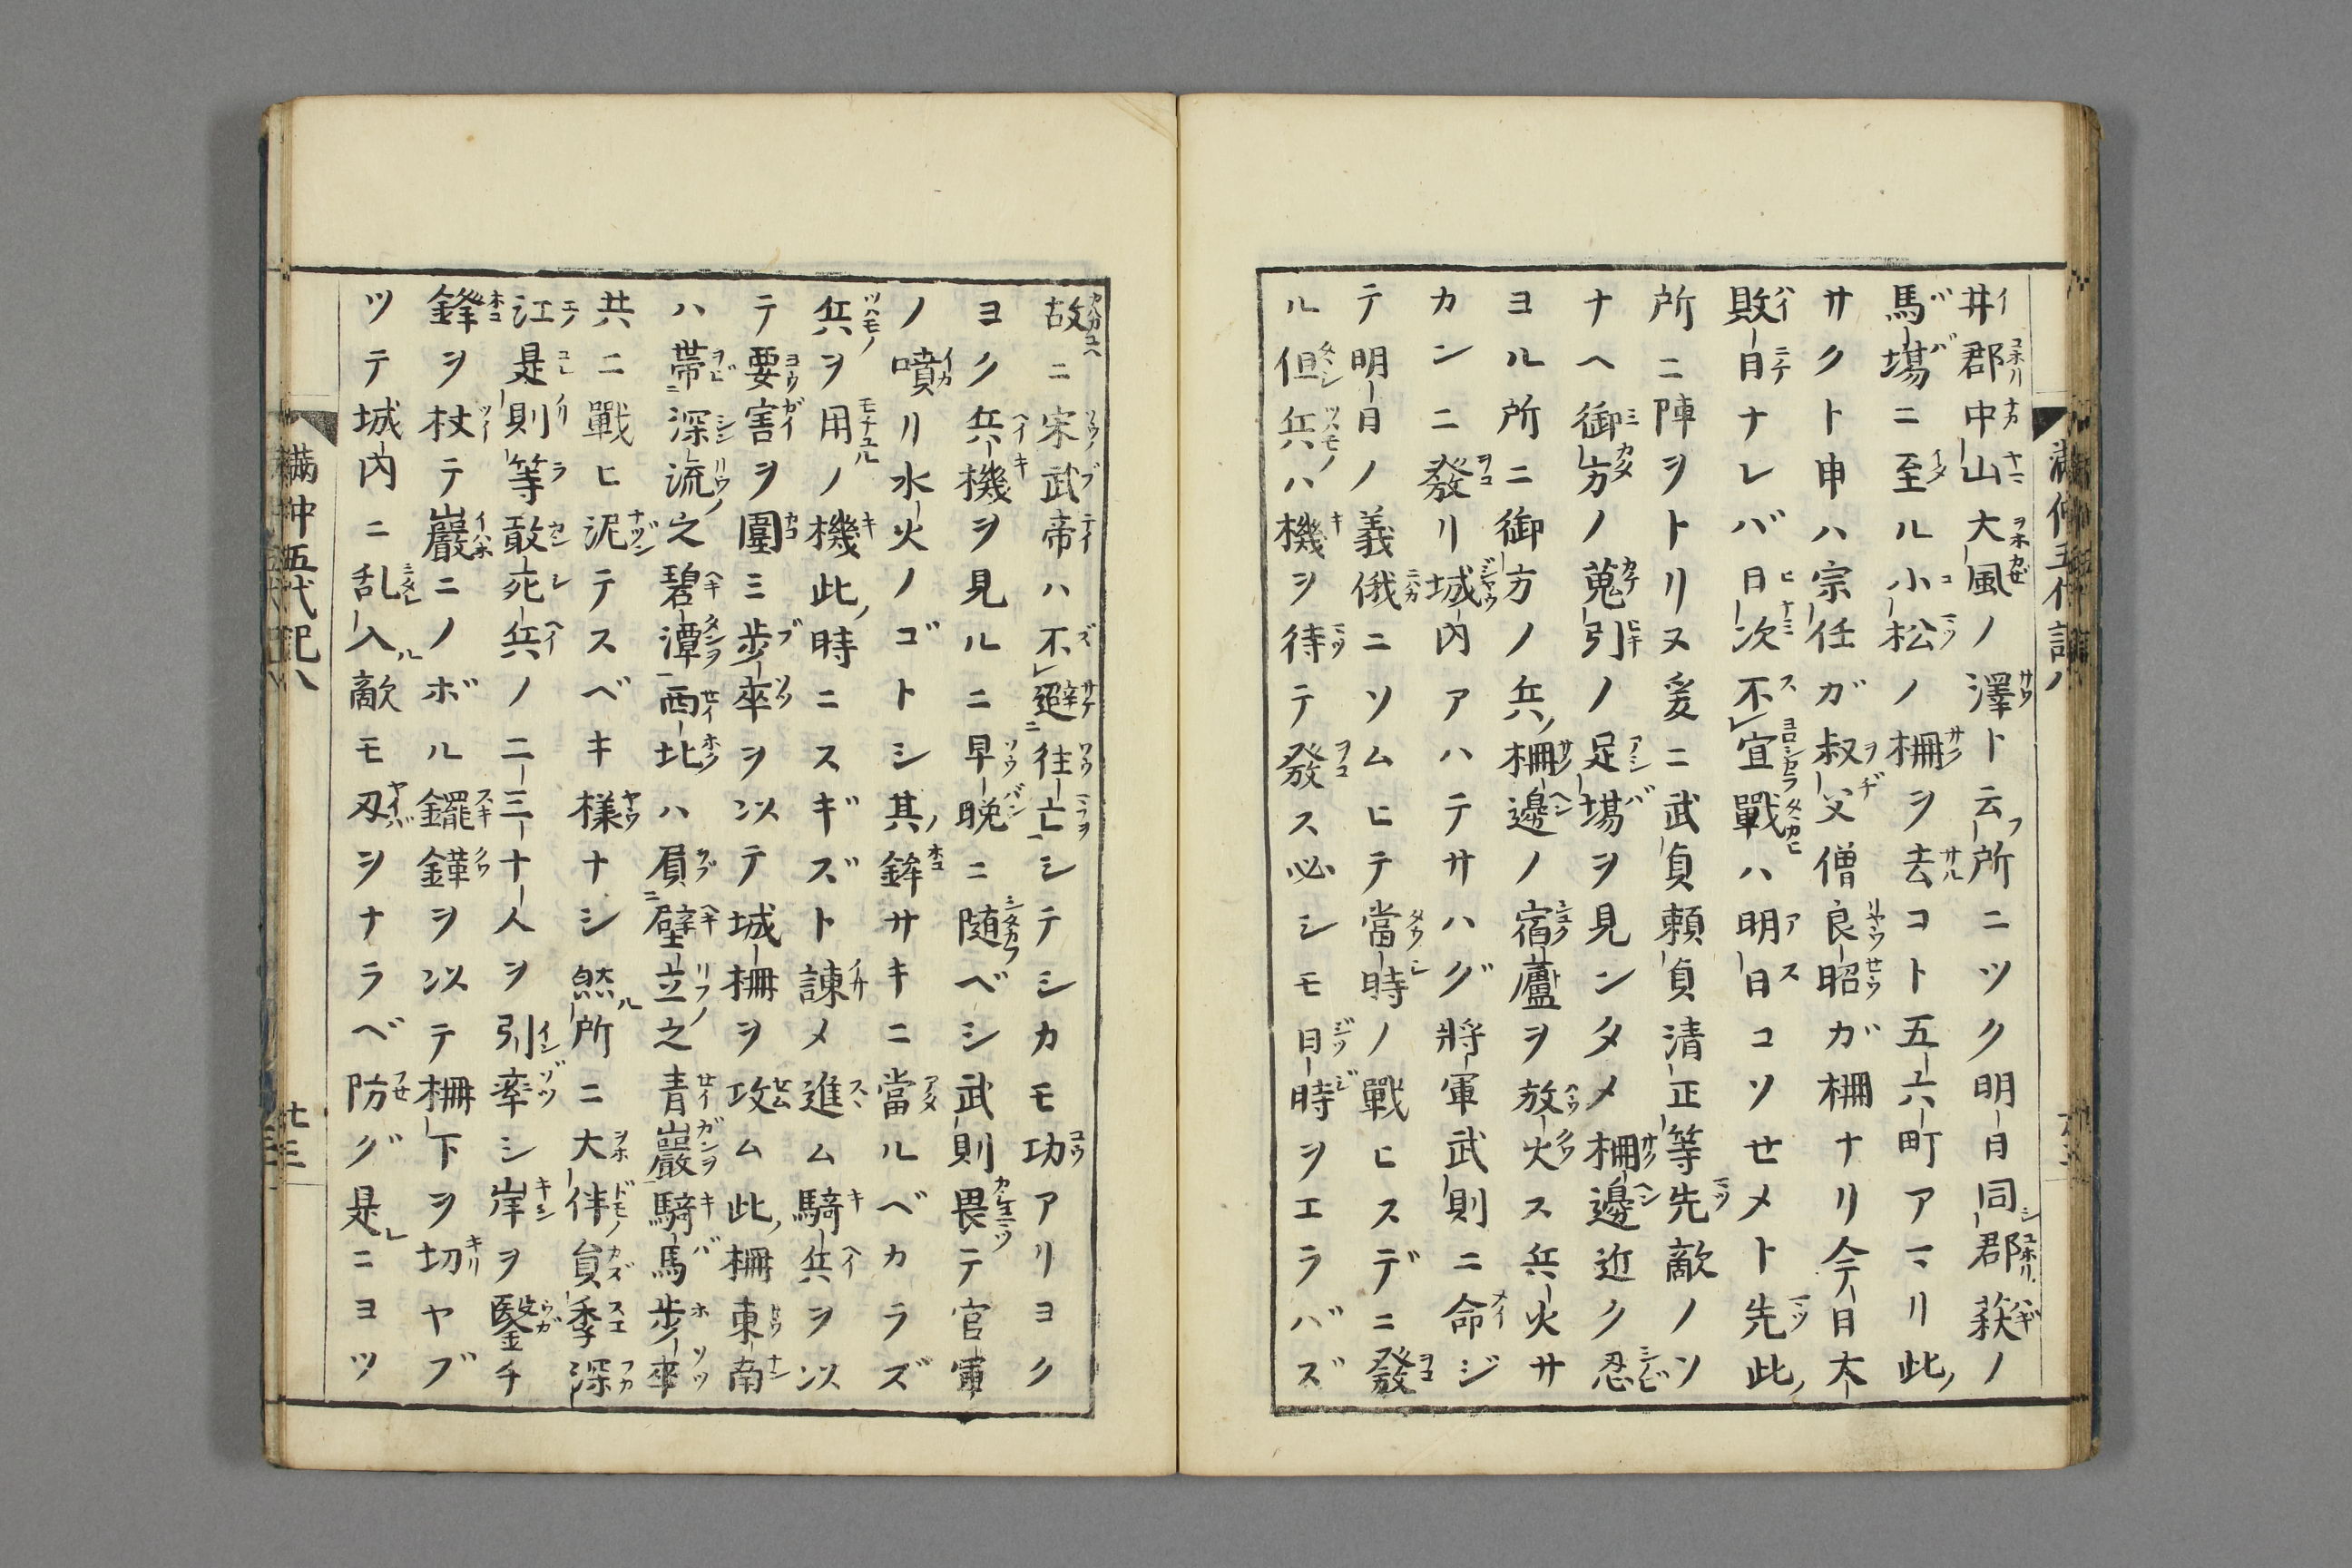 井郡中山大風ノ澤ト云所ニツク明日同郡萩ノ
馬塲ニ至ル小松ノ柵ヲ去コト五六町アマリ此
サクト申ハ宗任ガ叔父僧良昭ガ柵ナリ今日太
敗日ナレバ日次不宜戰ハ明日コソせメト先此
所ニ陣ヲトリヌ爰ニ武貞頼貞清正等先敵ノソ
ナヘ御方ノ蒐引ノ足塲ヲ見ンタメ柵邊近ク忍
ヨル所ニ御方ノ兵柵邊ノ宿蘆ヲ放火ス兵火サ
カンニ發リ城内アハテサハグ將軍武則ニ命ジ
テ明日ノ義俄ニソムヒテ當時ノ戰ヒスデニ發
ル但兵ハ機ヲ待テ發ス必シモ日時ヲエラバズ
故ニ宋武帝ハ不避往亡シテシカモ功アリヨク
ヨク兵機ヲ見ルニ早晩ニ随ベシ武則畏テ官軍
ノ噴リ水火ノゴトシ其鉾サキニ當ルベカラズ
兵ヲ用ノ機此時ニスギズト諌メ進ム騎兵ヲ以
テ要害ヲ圍ミ歩卒ヲ以テ城柵ヲ攻ム此柵東南
ハ帯深流之碧潭西北ハ屓壁立之青巖騎馬歩卒
共ニ戰ヒ泥テスベキ様ナシ然所ニ大伴貟季深
江是則等敢死兵ノ二三十人ヲ引率シ岸ヲ鑿チ
鋒ヲ杖テ巖ニノボル钁ヲ以テ柵下ヲ切ヤブ
ツテ城内ニ乱入敵モ刃ヲナラベ防グ是ニヨツ
滿仲五代記八
廿三